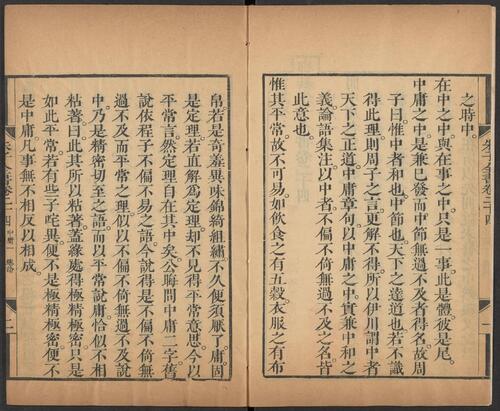 之時中。
在中之中與在事之中只是一事此是體彼是尾。
中庸之中是兼已發而中節無過不及者得名故周
子曰惟中者和也中節也天下之達道也若不識
得此理則周子之言更解不得所以伊川謂中者
天下之正道中庸章句以中庸之中實兼中和之
義論語集注以中者不偏不倚無過不及之名皆
此意也。
惟其平常故不可易如飲食之有五穀衣服之有布
朱子全書卷二十四
一
帛若是奇羞異味錦綺組繡不久便須厭了庸固
是定理若直解為定理却不見得平常意思今以
平常言然定理自在其中矣公晦問中庸二字舊
說依程子不偏不易之語今說得是不偏不倚無
過不及而平常之理似以不偏不倚無過不及說
中乃是精密切至之語而以平常說庸恰似不相
粘著曰此其所以粘著蓋緣處得極精極密只是
如此平常若有些子咤異便不是極精極密便不
是中庸凡事無不相反以相成
朱子全書卷二十四 中庸一
二